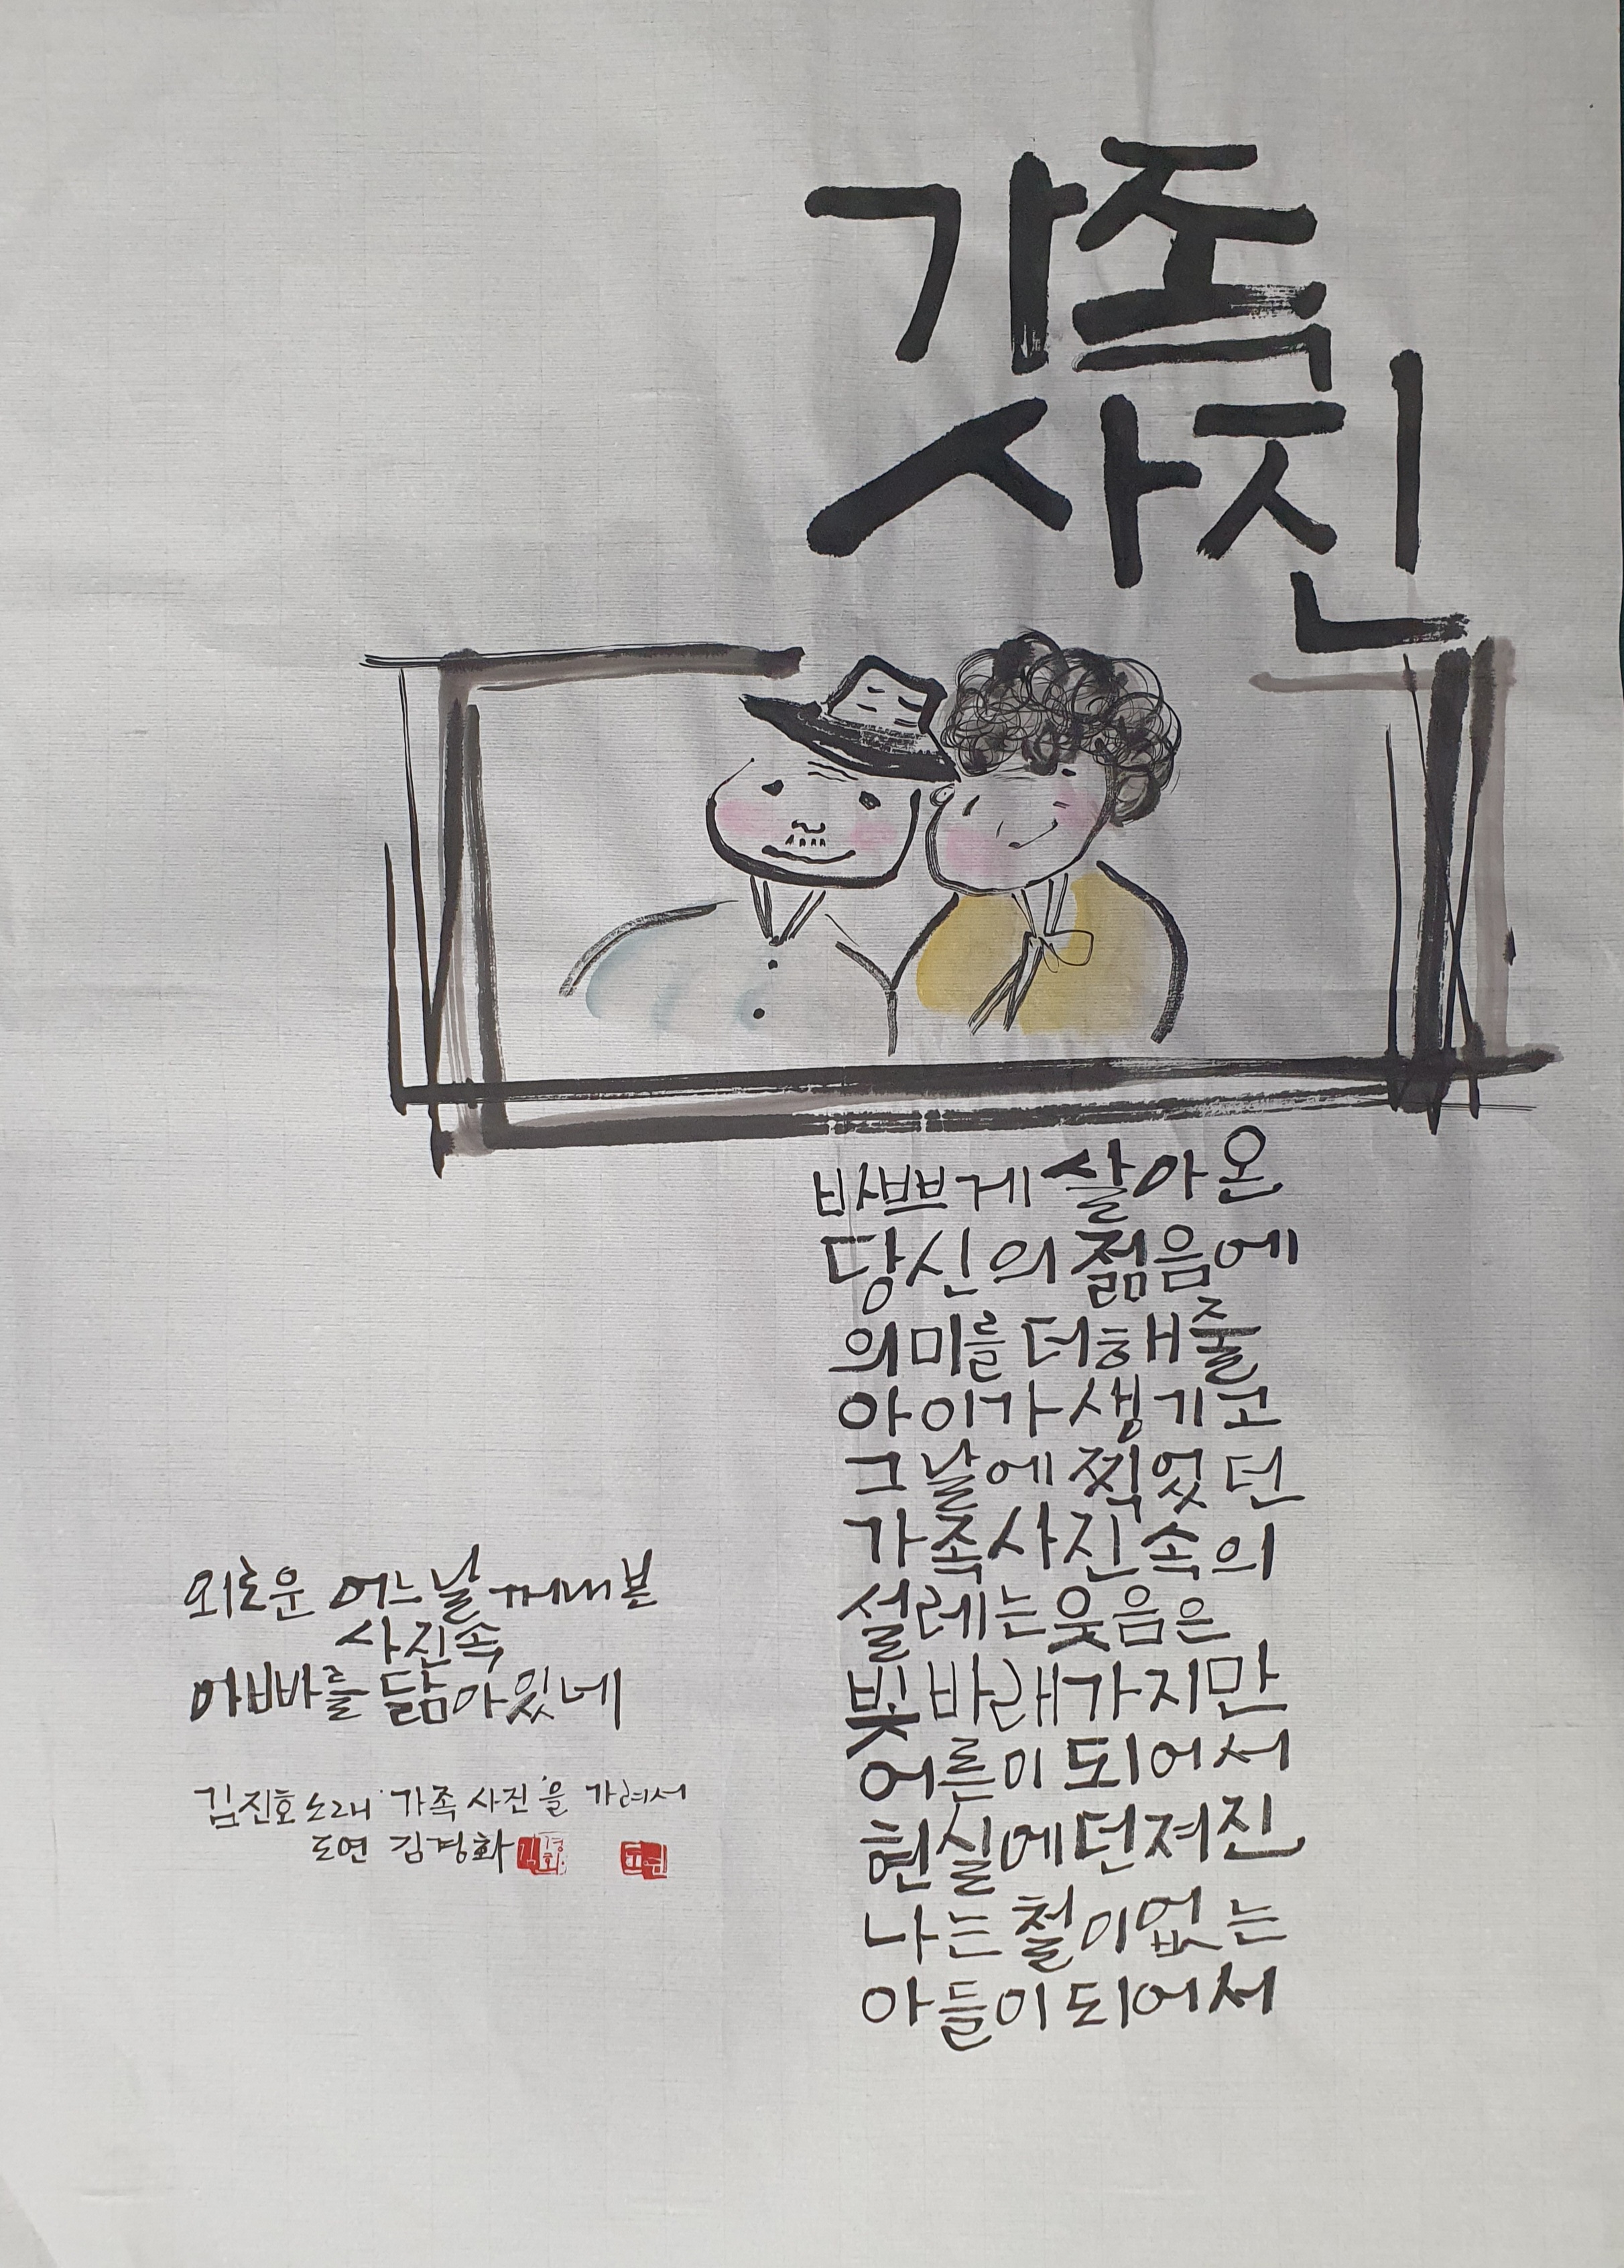 가족
사진
바쁘게 살아온
당신의 젊음에
의미를 더해줄
아이가 생기고
그날에 찍었던
가족사진속의
설레는 웃음은
빛바래가지만
어른이 되어서
현실에 던져진
나는 철이없는
아들이 되어서
외로운 어느날 꺼내본
사진속
아빠를 닮아있네
김진호 노래 '가족사진'을 가려서
도연 김경화